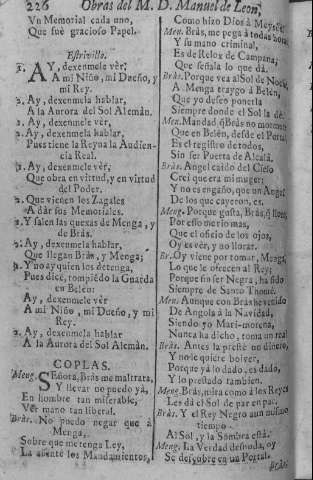 226 Obras del M. D. Manuel de Leon,
Un Memorial cada uno,
Que fuè gracioso Papel.
Estrivillo.
1. AY, dexenmele vèr,
A mi Niño, mi Dueño, y
mi Rey.
2. Ay, dexenmela hablar,
A la Aurora del Sol Alemàn.
1. Ay, dexenmele vèr,
2. Ay, dexenmela hablar,
Pues tiene la Reyna la Audien-
cia Real.
1. Ay, dexenmele vèr,
Que obra en virtud, y en virtud
del Poder.
2. Que vienen los Zagales
A dàr sus Memoriales.
1. Y salen las quexas de Menga, y
de Bràs.
2. Ay, dexenmela hablar,
Que llegan Bràs, y Menga;
1. Y no ay quien los detenga,
Pues dize, rompiò do la Guarda
en Belèn
Ay, dexenmele vèr
A mi Niño, mi Dueño, y mi
Rey.
2. Ay, dexenmela hablar
A la Aurora del Sol Alemàn.
COPLAS.
Meng. SEñora, Bràs me maltrata,
Y llevar no puedo yà,
En hombre tan miserable,
Vèr mano tan liberal.
Bràs. No puedo negar que à
Menga,
Sobre que tenga Ley,
La assentè los Mandamientos,
Como hizo Dios à Moysès.
Men. Bràs, me pega à todas horas,
Y su mano criminal,
Es de Relox de Campana,
Que señala lo que dà.
Bràs. Porque vea al Sol de Noche,
A Menga traygo à Belèn,
Que yo deseo ponerla
Siempre donde el Sol la dè.
Men. Mandad, q̃ Bràs no
Que en Belèn, desde el Portal
Es el registro de todos,
Sin ser Puerta de Alcalà.
Bràs. Angel caido del Cielo
Creì que era mi muger;
Y no es engaño, que un Angel
De los que cayeron, es.
Meng. Porque gusta, Bràs, q̃ llore,
Por esso me rio mas,
Que el oficio de los ojos,
Oy es vèr, y no llorar.
Br. Oy viene por tomar, Menga,
Lo que le ofrecen al Rey;
Porque sin ser Negra, ha sido
Siempre de Santo Thomè.
Men. Aunque con Bràs he venido
De Angola à la Navidad,
Siendo yo Mari-morena,
Nunca ha dicho, toma un real
Bràs. Antes la prestè no dinero,
Y no le quiere bolver,
Porque yà lo dado, es dado,
Y lo prestado tambien.
Meng. Bràs, mira como à los Reyes
Les dà el Sol de par en par.
Bràs. Y el Rey Negro aun mismo
tiempo
Al Sol, y la Sombra està.
Meng. La Verdad desnuda, oy
Se descubre en un Portal.
Bràs.